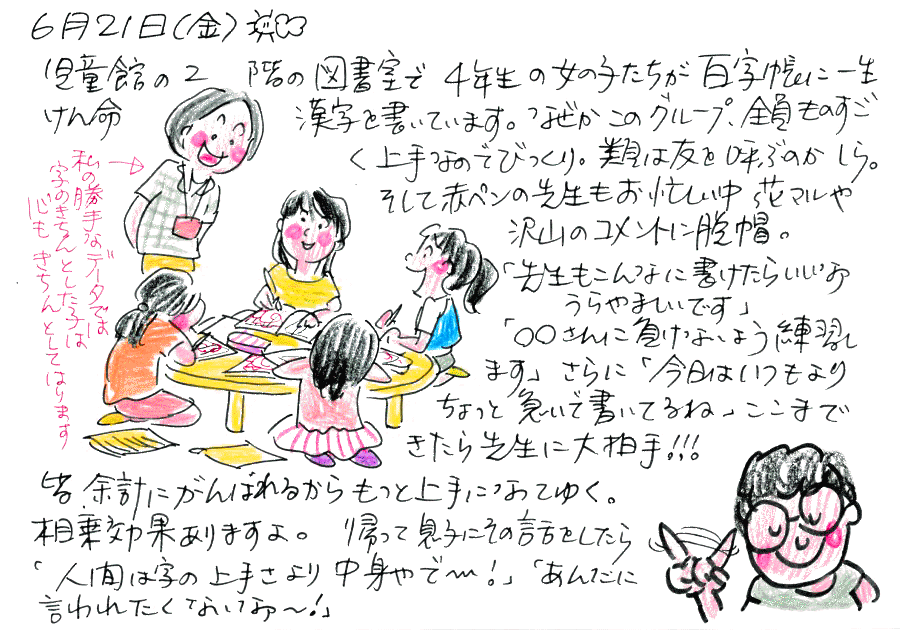 6月21日(金)
児童館の2階の図書室で4年生の女の子たちが百字帳に一生
けん命 漢字を書いています。なぜかこのグループ、全員ものすご
く上手なのでびっくり。類は友を呼ぶのかしら。
そして赤ペンの先生もお忙しい中花マルや
沢山のコメントに脱帽。
「先生もこんなに書けたらいいなあ
うらやましいです」
「○○さんに負けないよう練習し
ます」さらに「今日はいつもより
ちょっと急いで書いてるね」ここまで
きたら先生に大拍手!!!
皆余計にがんばれるからもっと上手になってゆく。
相乗効果ありますよ。 帰って息子にその話をしたら
「人間は字の上手さより中身やで〜!」「あんたに
言われたくないなあ〜!」
私の勝手なデータでは
字のきちんとした子は
心もきちんとしてはります